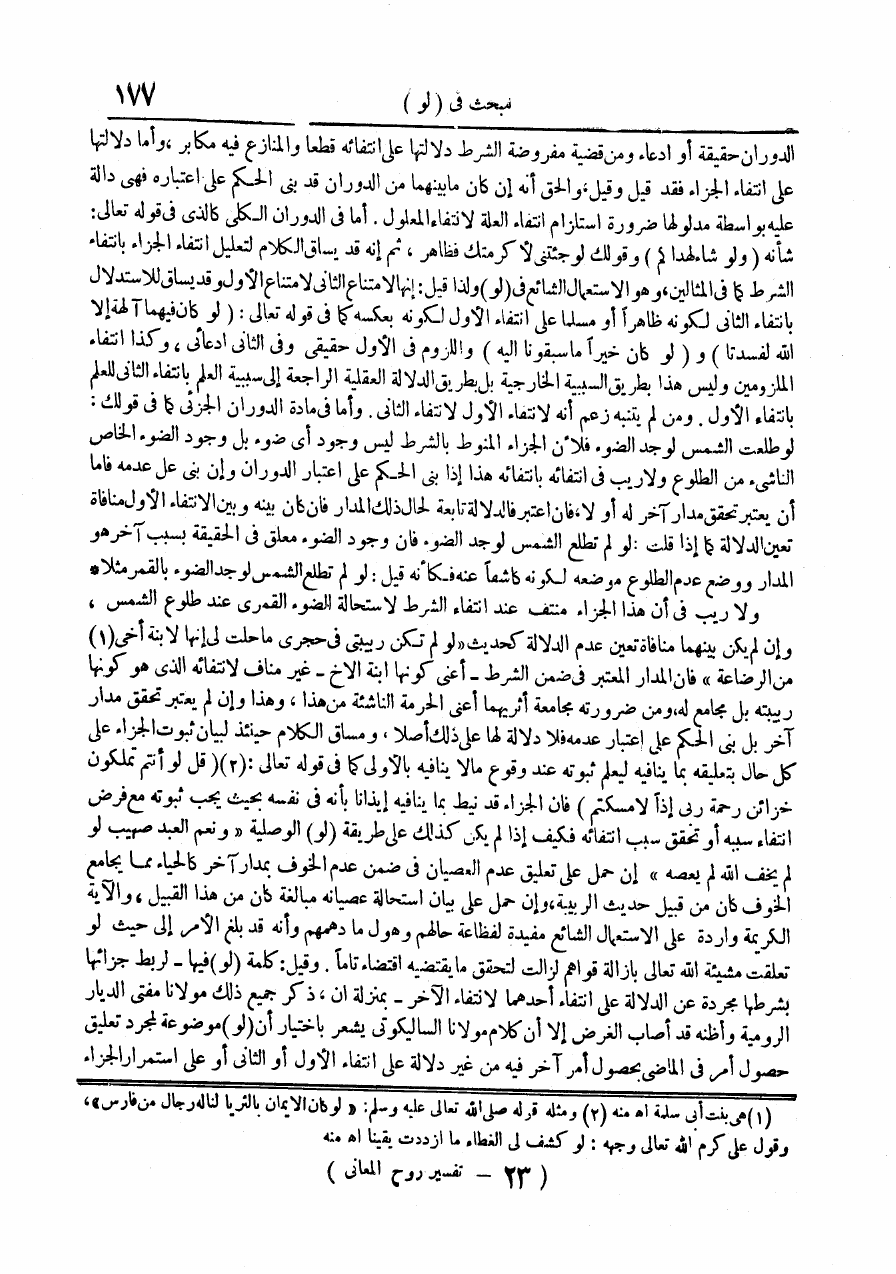 مبحث فى ( لو )
١٧٧
الدوران حقيقة أو ادعاء ومن قضية مفروضة الشرط دلالتها على انتفائه قطعا والمنازع فيه مكابر ،وأما دلالتها
على انتفاء الجزاء فقد قيل وقيل،والحق أنه إن كان مابينهما من الدوران قد بنى الحكم على اعتباره فهى دالة
عليه بواسطة مدلولها ضرورة استلزام انتفاء العلة لانتفاء المعلول . أما فى الدوران الكلى كالذى فى قوله تعالى:
شأنه ( ولو شاء لهداكم ) وقولك لو جئتنى لأكرمتك فظاهر ، ثم إنه قد يساق الكلام لتعليل انتفاء الجزاء بانتفاء
الشرط كما فى المثالين،وهو الاستعمال الشائع فى(لو)ولذا قيل:إنها لامتناع الثانى لامتناع الأول وقد يساق للاستدلال
بانتفاء الثانى لكونه ظاهراً أو مسلما على انتفاء الأول لكونه بعكسه كما فى قوله تعالى : ( لو كان فيهما آلهة إلا
الله لفسدتا ) و ( لو كان خيراً ماسبقونا اليه ) واللزوم فى الأول حقيقى وفى الثانى ادعائى ، وكذا انتفاء
الملزومين وليس هذا بطريق السببية الخارجية بل بطريق الدلالة العقلية الراجعة إلى سببية العلم بانتفاء الثانى للعلم
بانتفاء الأول . ومن لم يتنبه زعم أنه لانتفاء الأول لانتفاء الثانى . وأما فى مادة الدوران الجزئى كما فى قولك :
لو طلعت الشمس لوجد الضوء فلأن الجزاء المنوط بالشرط ليس وجود أى ضوء بل وجود الضوء الخاص
الناشىء من الطلوع ولاريب فى انتفائه بانتفائه هذا إذا بنى الحكم على اعتبار الدوران وإن بنى على عدمه فاما
أن يعتبر تحقق مدار آخر له أو لا،فان اعتبر فالدلالة تابعة لحال ذلك المدار فان كان بينه وبين الانتفاء الأول منافاة
تعين الدلالة كما إذا قلت :لو لم تطلع الشمس لوجد الضوء فان وجود الضوء معلق فى الحقيقة بسبب آخر هو
المدار ووضع عدم الطلوع موضعه لكونه كاشفاً عنه فكأنه قيل : لو لم تطلع الشمس لوجد الضوء بالقمر مثلا*
ولا ريب فى أن هذا الجزاء منتف عند انتفاء الشرط لاستحالة الضوء القمرى عند طلوع الشمس ،
وإن لم يكن بينهما منافاة تعين عدم الدلالة كحديث«لو لم تكن ربيبتى فى حجرى ماحلت لى إنها لابنة أخى(١)
من الرضاعة » فان المدار المعتبر فى ضمن الشرط - أعنى كونها ابنة الاخ - غير مناف لانتفائه الذى هو كونها
ربيبته بل مجامع له،ومن ضرورته مجامعة أثريهما أعنى الحرمة الناشئة من هذا ، وهذا وإن لم يعتبر تحقق مدار
آخر بل بنى الحكم على اعتبار عدمه فلا دلالة لها على ذلك أصلا ، ومساق الكلام حينئذ لبيان ثبوت الجزاء على
كل حال بتعليقه بما ينافيه ليعلم ثبوته عند وقوع مالا ينافيه بالأولى كما فى قوله تعالى :(٢)( قل لو أنتم تملكون
خزائن رحمة ربى إذاً لامسكتم ) فان الجزاء قد نيط بما ينافيه إيذانا بأنه فى نفسه بحيث يجب ثبوته مع فرض
انتفاء سببه أو تحقق سبب انتفائه فكيف إذا لم يكن كذلك على طريقة (لو) الوصلية « ونعم العبد صهيب لو
لم يخف الله لم يعصه » إن حمل على تعليق عدم العصيان فى ضمن عدم الخوف بمدار آخر كالحياء مما يجامع
الخوف كان من قبيل حديث الربيبة،وإن حمل على بيان استحالة عصيانه مبالغة كان من هذا القبيل ، والآية
الكريمة واردة على الاستعمال الشائع مفيدة لفظاعة حالهم وهول ما دهمهم وأنه قد بلغ الأمر إلى حيث لو
تعلقت مشيئة الله تعالى بازالة قواهم لزالت لتحقق مايقتضيه اقتضاء تاماً . وقيل: كلمة (لو)فيها - لربط جزائها
بشرطها مجردة عن الدلالة على انتفاء أحدهما لانتفاء الآخر - بمنزلة ان ، ذكر جميع ذلك مولانا مفتى الديار
الرومية وأظنه قد أصاب الغرض إلا أن كلام مولانا الساليكوتى يشعر باختيار أن(لو)موضوعة لمجرد تعليق
حصول أمر فى الماضى بحصول أمر آخر فيه من غير دلالة على انتفاء الأول أو الثانى أو على استمرار الجزاء
(١)هى بنت أبى سلمة اه منه (٢) ومثله قوله صلى الله تعالى عليه وسلم: « لو كان الايمان بالثريا لناله رجال من فارس»،
وقول على كرم الله تعالى وجهه : لو كشف لى الغطاء ما ازددت يقينا اه منه
( ٢٣ – تفسير روح المعانى )